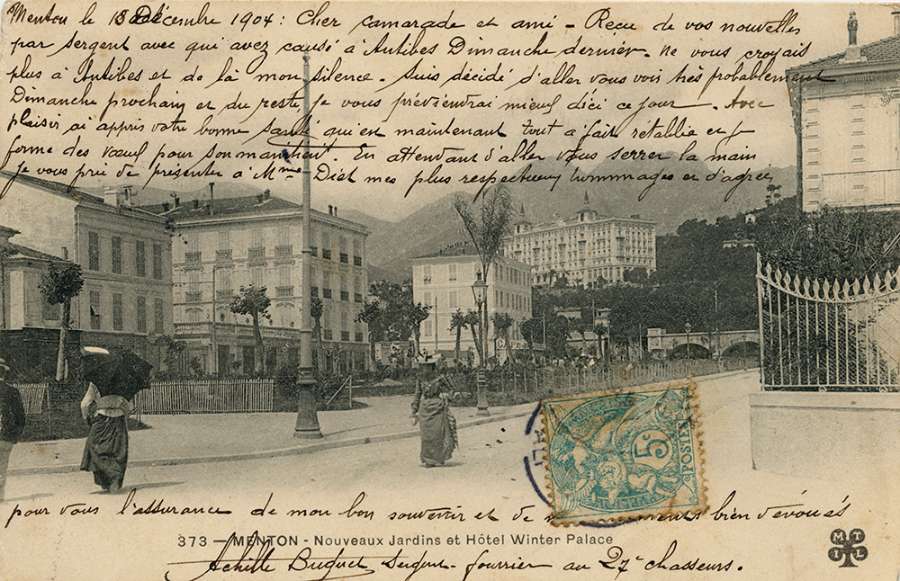 Menton le 18 Décembre 1904 : Cher camarade et ami - Reçu de vos nouvelles
par sergent avec qui avez causé à Antibes Dimanche dernier. ne vous croyais
plus à Antibes et de là mon silence. Suis décidé d'aller vous voir très probablement
Dimanche prochain et du reste je vous préviendrai mieux d'ici ce jour. Avec
plaisir ai appris votre bonne santé qu'en maintenant tout à fait rétablie et je
forme des vœux pour son maintient. En attendant d'aller vous serrer la main
Je vous prie de présenter à Mme mes plus respectueux hommages et d'agréer
pour vous l'assurance de mon bon souvenir et de bien dévoués
373 - MENTON - Nouveaux Jardins et Hôtel Winter Palace
Achille Sergent-fourrier au 27e chasseurs.
5c
POSTES
MTIL